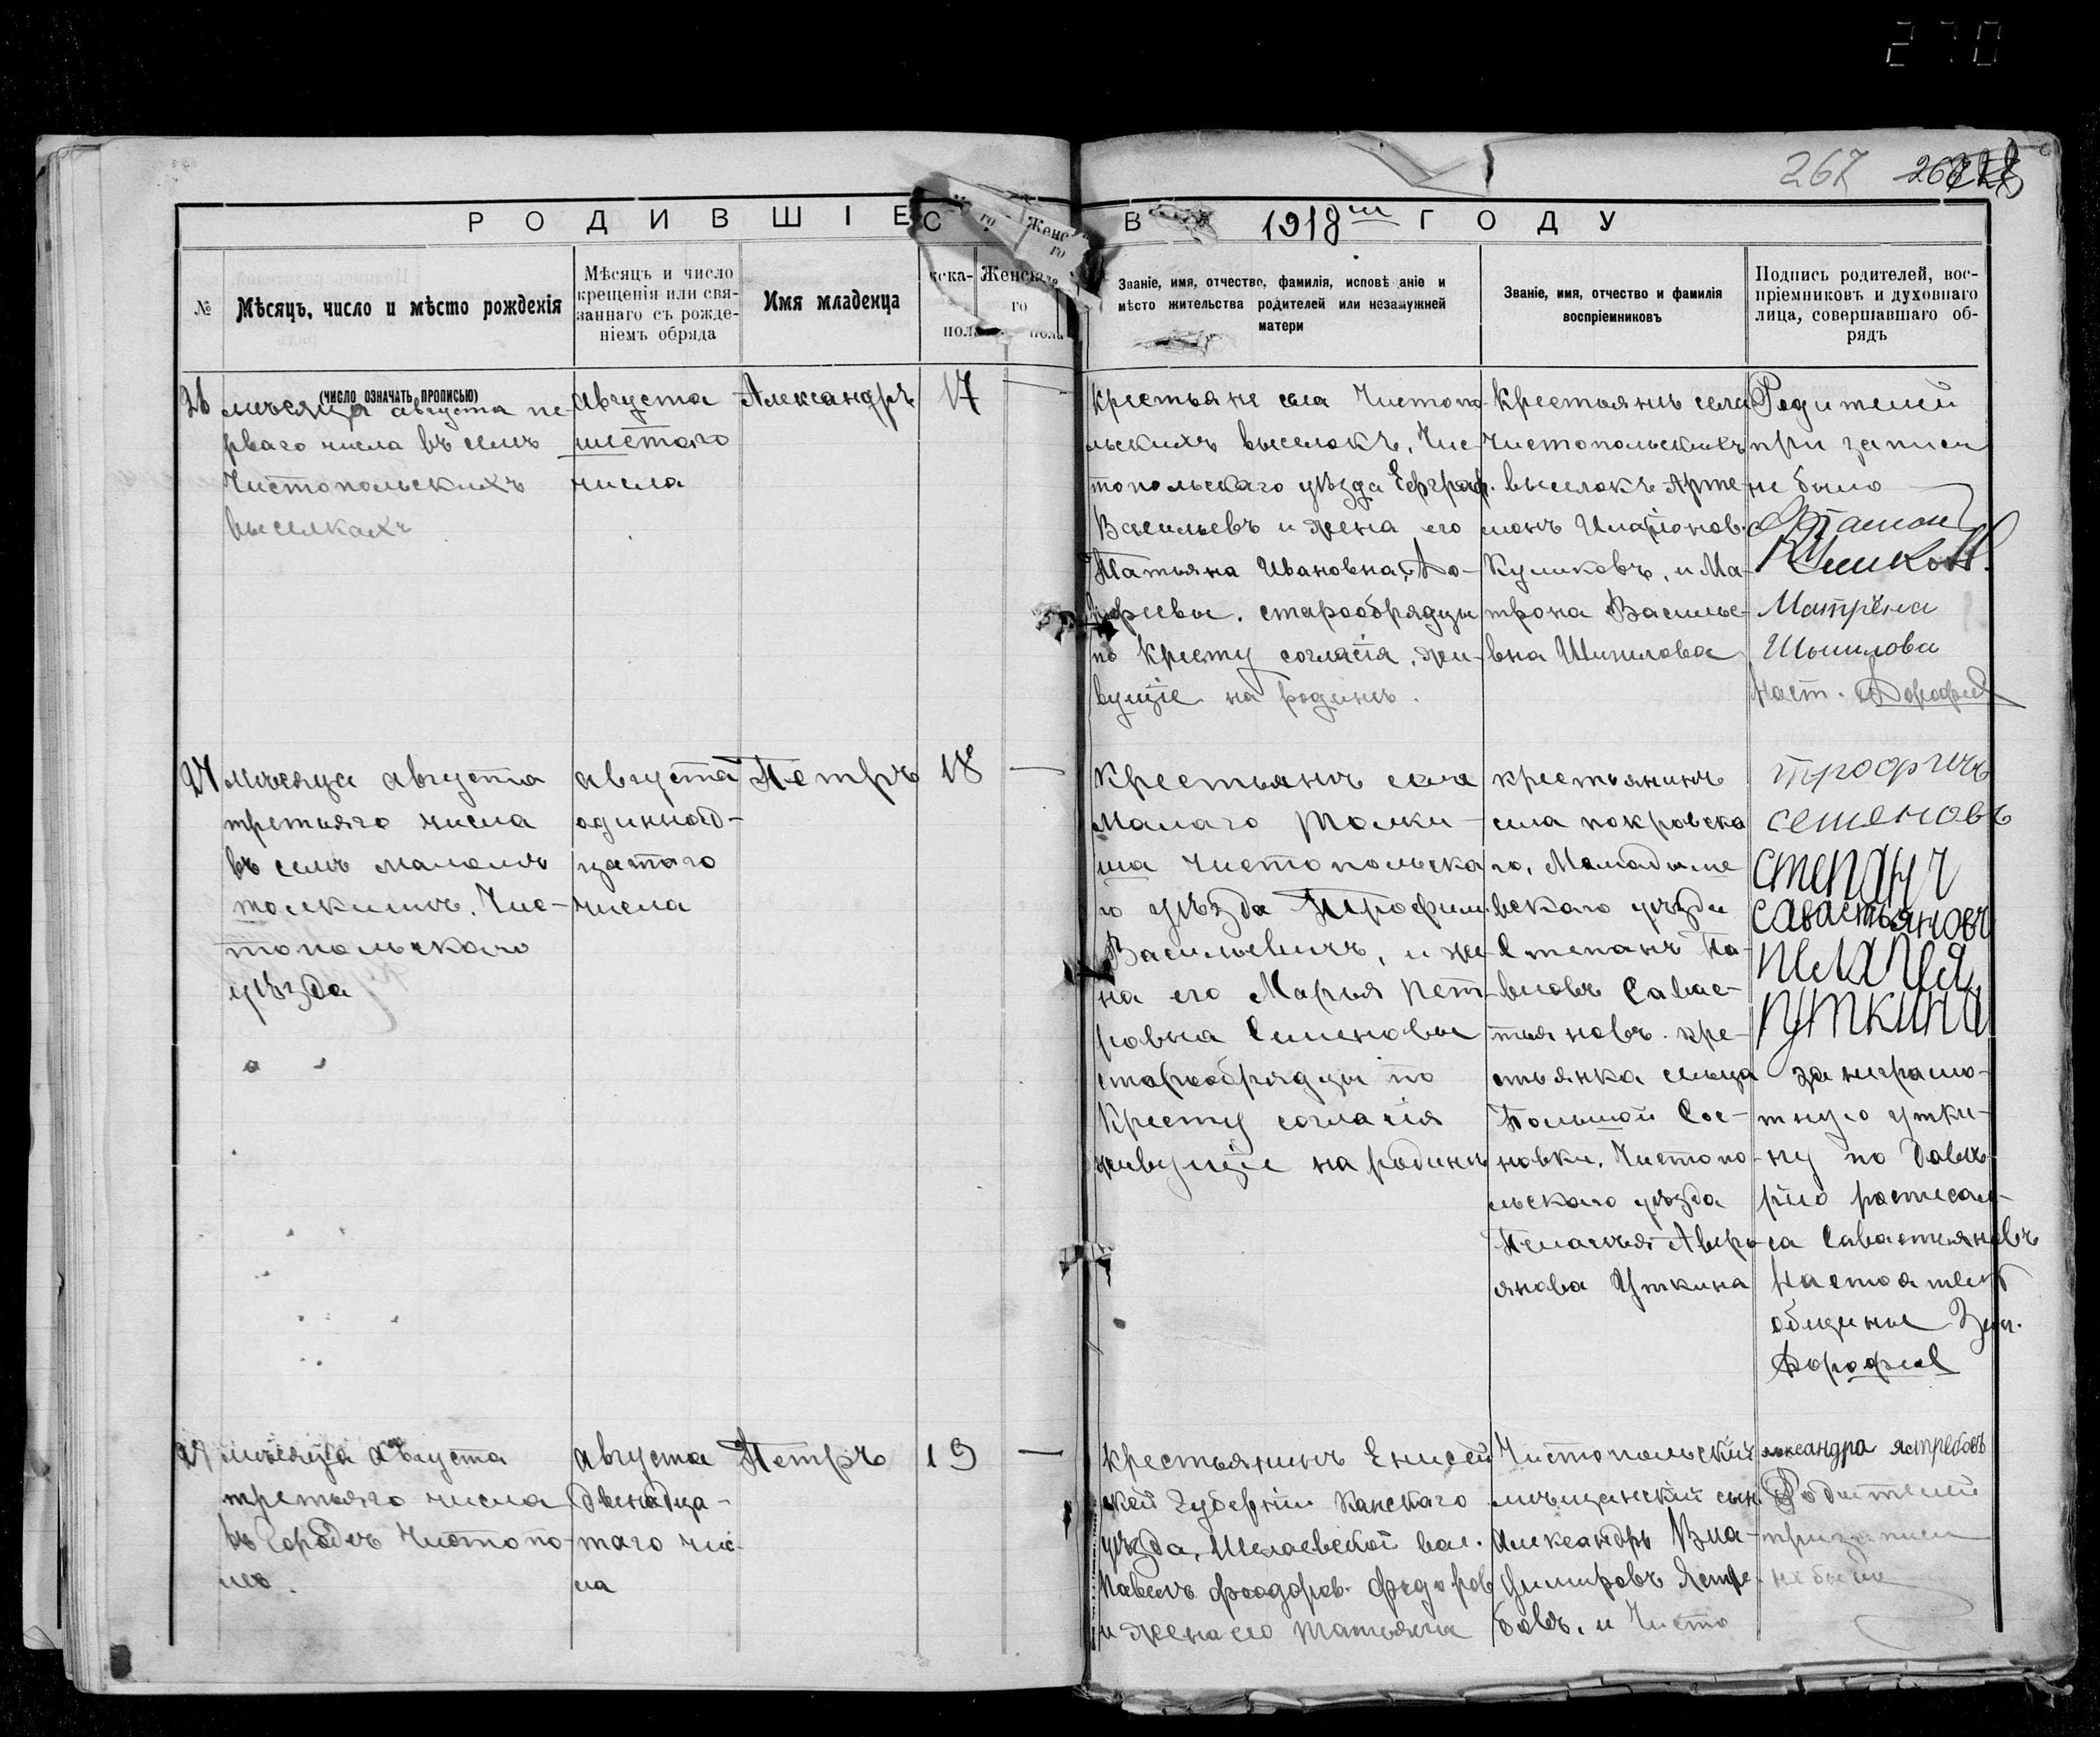 270
267
РОДИВШІЕС
В 1918 ГОДУ
№
Мѣсяцъ, число и мѣсто рожденія
Мѣсяцъ и число
крещенія или свя-
заннаго съ рожде-
ніемъ обряда
Имя младенца
жска-
пола
Женска
го
пола
Женс
го
Званіе, имя, отчество, фамилія, исповѣ аніе и
мѣсто жительства родителей или незамужней
матери
Званіе, имя, отчество и фамилія
воспріемниковъ
Подпись родителей, вос-
пріемниковъ и духовнаго
лица, совершавшаго об-
рядъ
(ЧИСЛО ОЗНАЧАТЬ ПРОПИСЬЮ)
26
мѣсяца августа пе-
рваго числа въ селѣ
Чистопольскихъ
выселкахъ
августа
шестого
числа
Александръ
17
—
Крестьяне села Чистопо-
льскихъ выселокъ, Чис-
топольскаго уѣзда Евграф.
Васильевъ и жена его
Татьяна Ивановна, До-
рофеевы. старообрядцы
по Кресту согласія, жи-
вущіе на родинѣ.
Крестьянъ села
Чистопольскихъ
выселокъ Арте-
монъ Иларіонов.
Куликовъ, и Ма-
трона Василье-
вна Шипилова
Родителей
при записи
не было
Артамон
Куликов.
Матрёна
Шыпилова
Наст. Дорофеев
27
мѣсяца августа
третьяго числа
въ селѣ маломъ
толкишѣ. Чис-
топольскаго
уѣзда
августа
одиннад-
цатаго
числа
Петръ
18
—
Крестьянъ села
Малаго Толки-
ша Чистопольска
го уѣзда Трофим.
Васильевичъ, и же-
на его Марья Пет-
ровна Семеновы
старообрядцы по
Кресту согласія
живущіе на родинѣ
крестьянинъ
села покровска
го, Мамадыше
вскаго уѣзда
Степанъ Па-
вловъ Савас-
тьяновъ. кре-
стьянка сельца
Большой Сос-
новки, Чистопо-
льскаго уѣзда
Пелагея Авер-
янова Уткина
трофимъ
семеновъ
степанъ
савастьяновъ
пелагея
путкина
за неграмо-
тную утки-
ну по довѣ-
рію росписал-
са Савастьяновъ
Настоятель
общины
Дорофеев
27
мѣсяца августа
третьяго числа
въ городѣ Чистопо-
лѣ.
августа
двенадца-
таго чис-
ла
Петръ
19
—
крестьянинъ Енисей
ской Губерніи Канскаго
уѣзда, Шелаевской вол.
Павелъ феодоров. Федоров
и жена его Татьяна
Чистопольскій
мѣщанскій сын.
Александръ Вла-
димировъ Ястре-
бовъ. и Чисто
александра ястребовъ
Родителей
при записи
не было